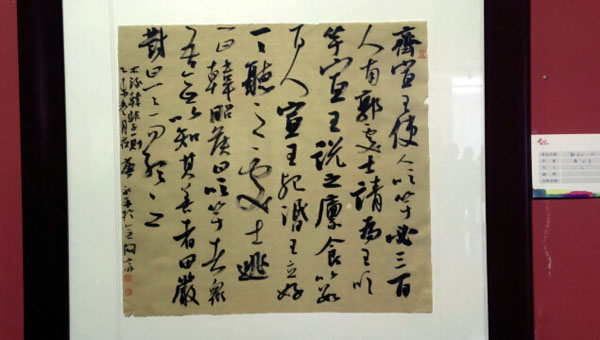 齊宣王使人吹竽必三百
人南郭處士請為王吹
竽宣王說之廩食以數
百人宣王死湣王立好
一一聽之處士逃
一曰韓昭侯曰吹竽者衆
吾無以知其善者田嚴
對曰一一而聽之
右錄韓非子一則